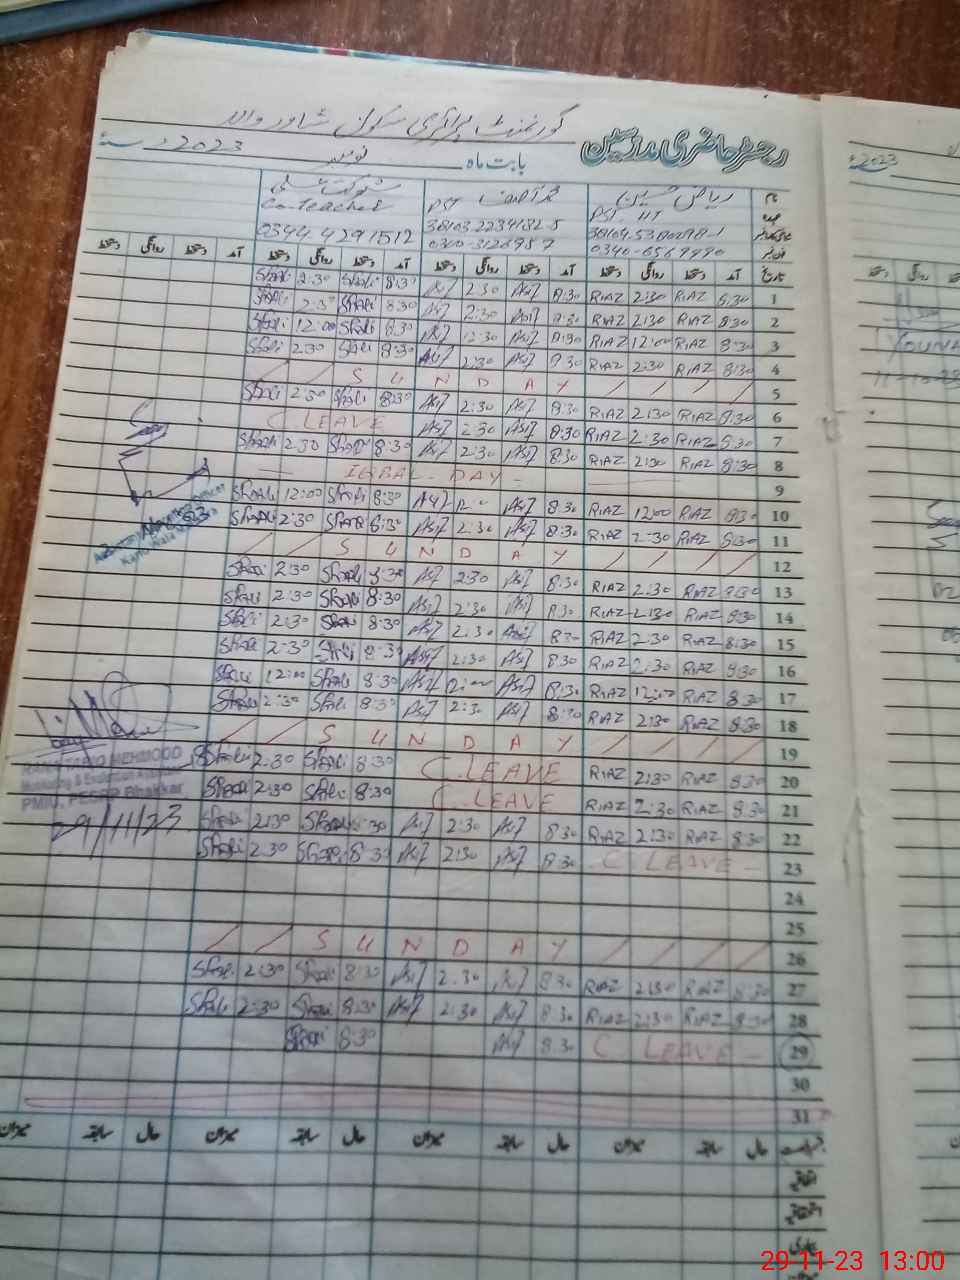 گورنمنٹ پرائمری سکول شاور والا
رجسٹر حاضری مدرسین بابت ماہ نومبر 2023ء
ریاض حسین
محمد آصف
شوکت علی
PST HT
PST
Co.teacher
38103.2234182-5
0344.4291512
0340-6569990
آمد دستخط روانگی دستخط آمد دستخط روانگی دستخط آمد دستخط روانگی دستخط آمد دستخط روانگی دستخط
Shali 2:30 Shali 8:30 Asif 2:30 Asif 8:30 RIAZ 2:30 RIAZ 8:30 1
Shali 2:30 Shali 8:30 Asif 2:30 Asif 8:30 RIAZ 2:30 RIAZ 8:30 2
Shali 12:00 Shali 8:30 Asif 12:30 Asif 8:30 RIAZ 12:00 RIAZ 8:30 3
Shali 2:30 Shali 8:30 Asif 2:30 Asif 8:30 RIAZ 2:30 RIAZ 8:30 4
/ / S U N D A Y / / / / 5
Shali 2:30 Shali 8:30 Asif 2:30 Asif 8:30 RIAZ 2:30 RIAZ 8:30 6
C.LEAVE Asif 2:30 Asif 8:30 RIAZ 2:30 RIAZ 8:30 7
Shali 2:30 Shali 8:30 Asif 2:30 Asif 8:30 RIAZ 2:30 RIAZ 8:30 8
IQBAL - DAY - 9
Shali 12:00 Shali 8:30 Asif 12:00 Asif 8:30 RIAZ 12:00 RIAZ 8:30 10
Shali 2:30 Shali 8:30 Asif 2:30 Asif 8:30 RIAZ 2:30 RIAZ 8:30 11
/ / S U N D A Y / / / / 12
Shali 2:30 Shali 8:30 Asif 2:30 Asif 8:30 RIAZ 2:30 RIAZ 8:30 13
Shali 2:30 Shali 8:30 Asif 2:30 Asif 8:30 RIAZ 2:30 RIAZ 8:30 14
Shali 2:30 Shali 8:30 Asif 2:30 Asif 8:30 RIAZ 2:30 RIAZ 8:30 15
Shali 2:30 Shali 8:30 Asif 2:30 Asif 8:30 RIAZ 2:30 RIAZ 8:30 16
Shali 12:00 Shali 8:30 Asif 12:00 Asif 8:30 RIAZ 12:00 RIAZ 8:30 17
Shali 2:30 Shali 8:30 Asif 2:30 Asif 8:30 RIAZ 2:30 RIAZ 8:30 18
/ / S U N D A Y / / / / 19
Shali 2:30 Shali 8:30 C.LEAVE RIAZ 2:30 RIAZ 8:30 20
Shali 2:30 Shali 8:30 C.LEAVE RIAZ 2:30 RIAZ 8:30 21
Shali 2:30 Shali 8:30 Asif 2:30 Asif 8:30 RIAZ 2:30 RIAZ 8:30 22
Shali 2:30 Shali 8:30 Asif 2:30 Asif 8:30 C.LEAVE - 23
24
25
/ / S U N D A Y / / / / 26
Shali 2:30 Shali 8:30 Asif 2:30 Asif 8:30 RIAZ 2:30 RIAZ 8:30 27
Shali 2:30 Shali 8:30 Asif 2:30 Asif 8:30 RIAZ 2:30 RIAZ 8:30 28
Shali 8:30 Asif 8:30 C. LEAVE - 29
30
31
میزان سابقہ حال میزان سابقہ حال میزان سابقہ حال میزان
MEHMOOD
Monitoring & Evaluation Assistant
PMIU, PESRP Bhakkar
29/11/23
2023ء
YOUNA
11-10-23
29-11-23 13:00